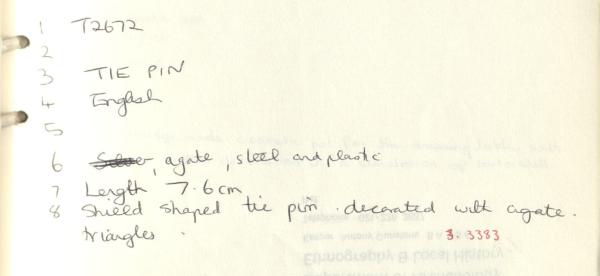 1 T2672
2
3 TIE PIN
4 English
5
6 Silver, agate, steel and plastic
7 Length 7.6cm
8 Shield shaped tie pin. decorated with agate.
triangles.
3.3383